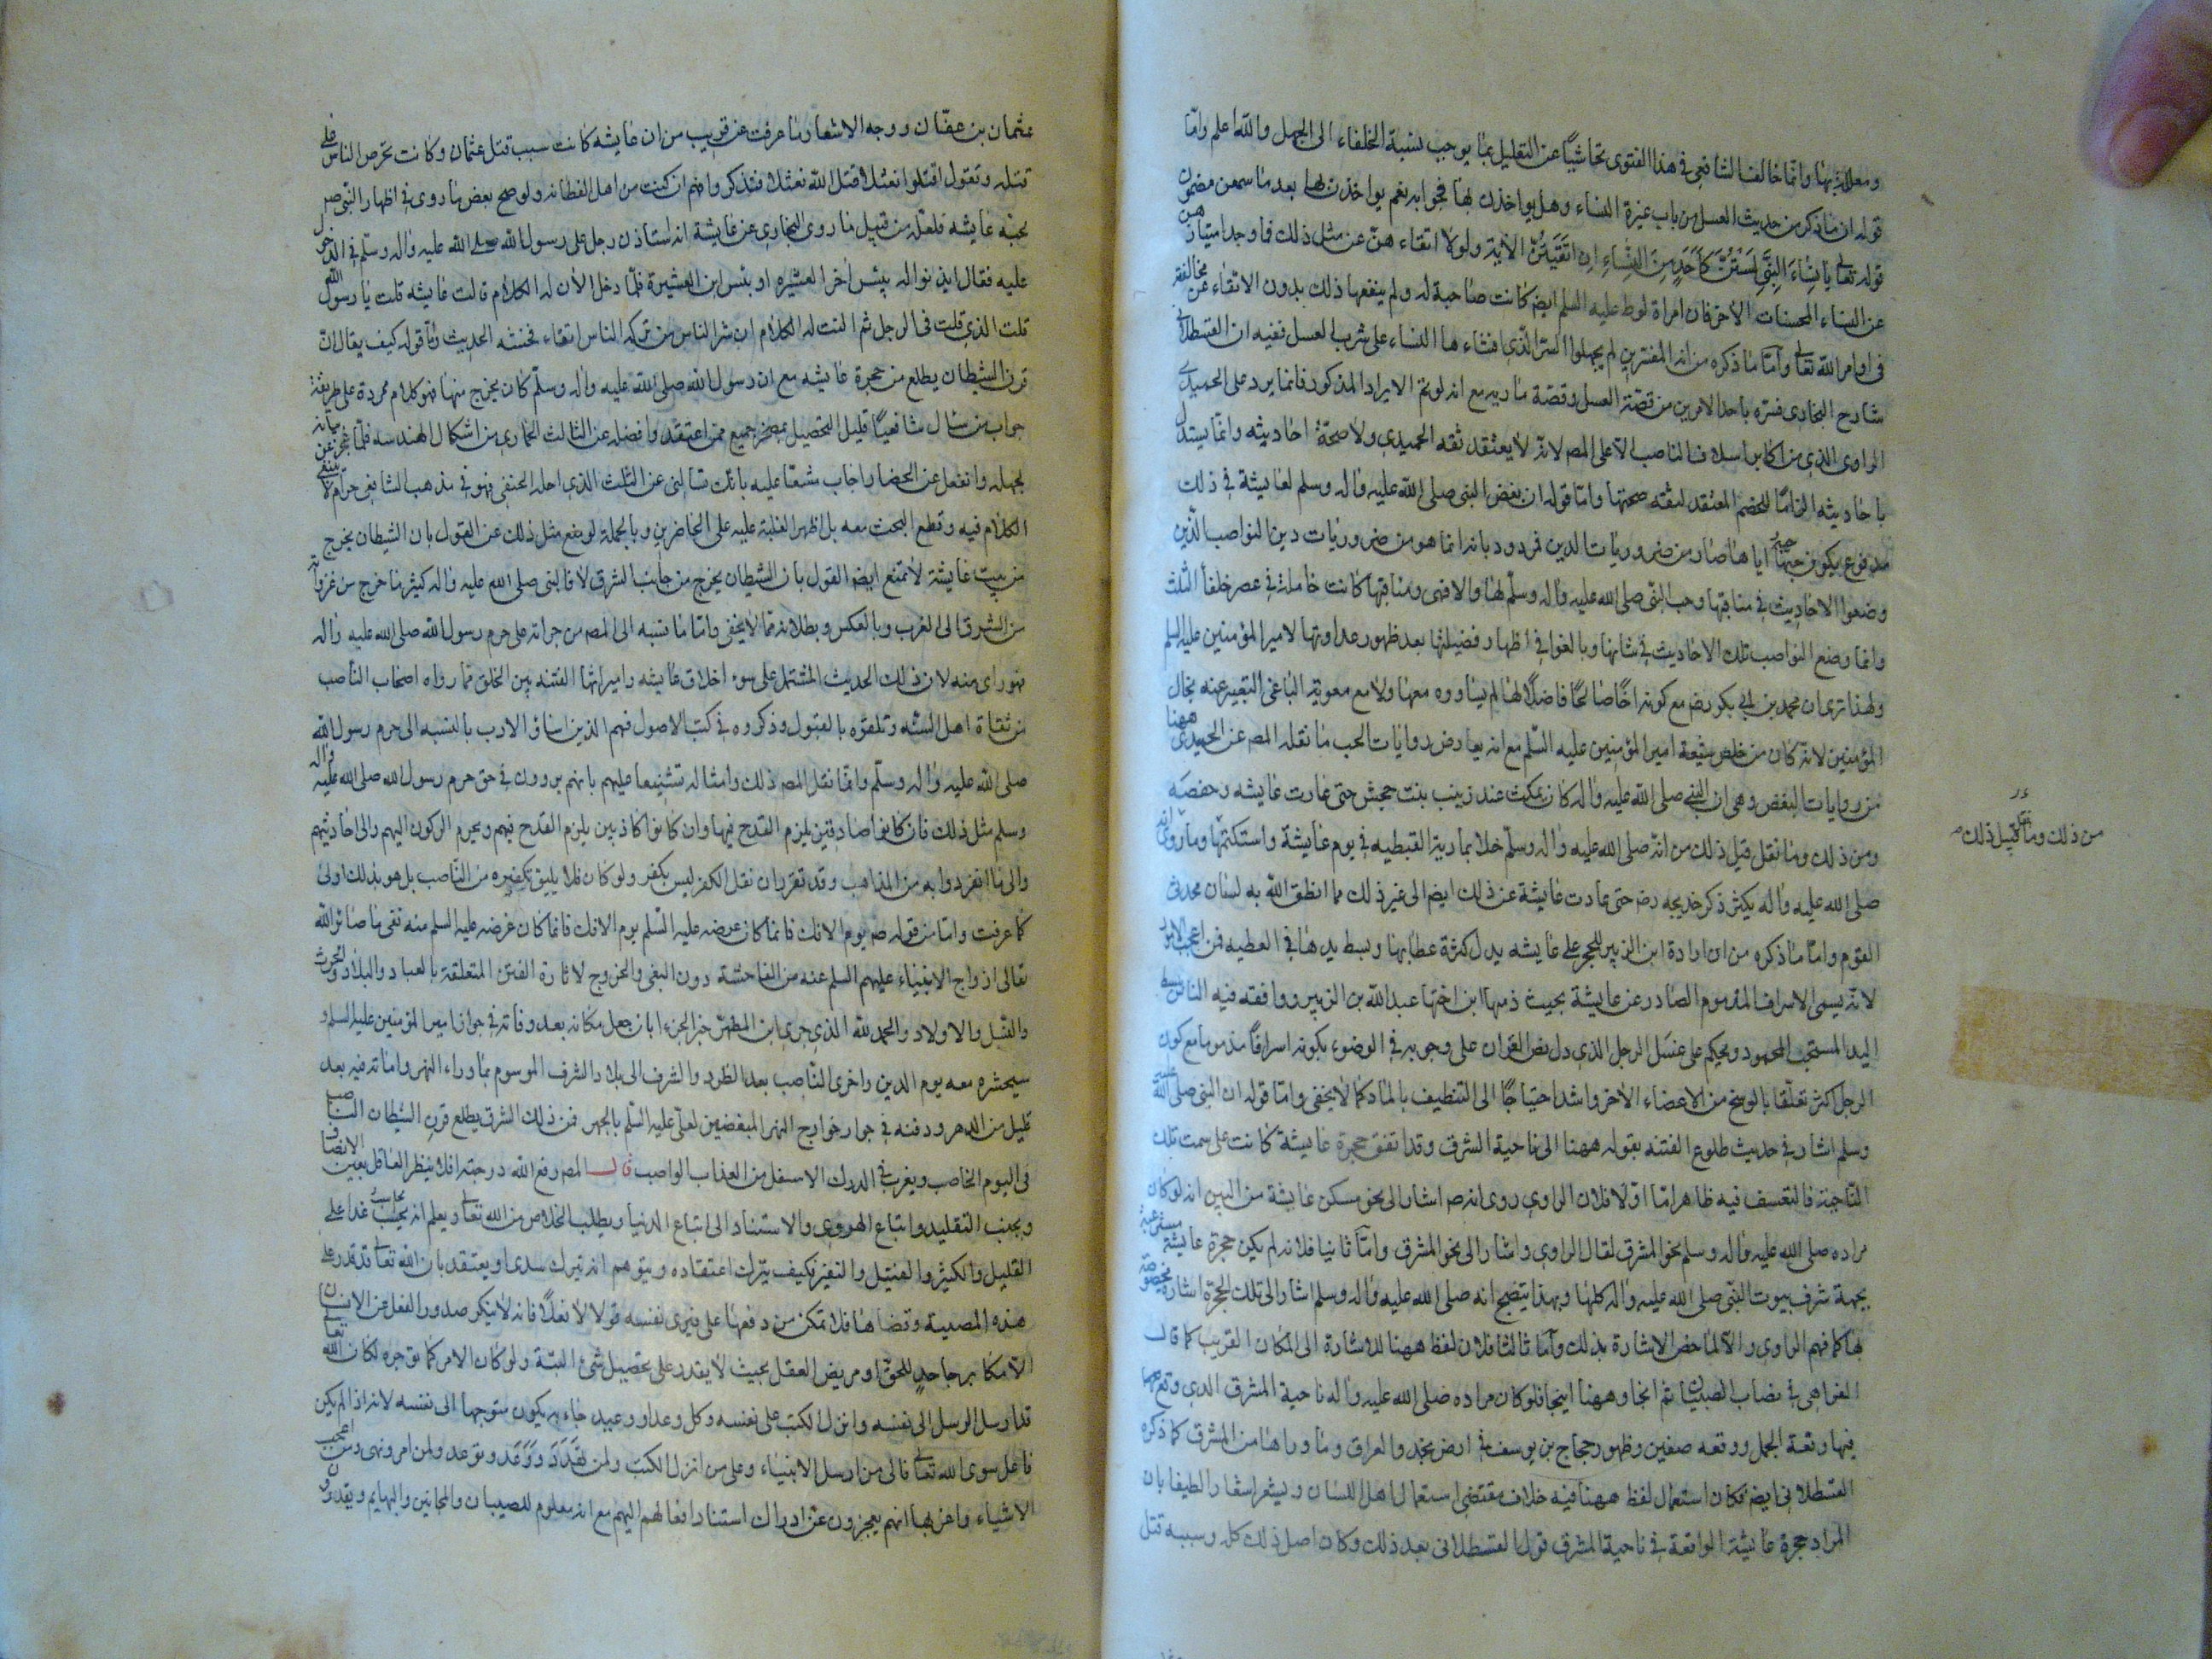 ومعللة بها وانما خالف الشافعي في هذا الفتوى تحاشياً عن التعليل بما يوجب نسبة الخلفاء الى الجهل والله اعلم واما
قوله ان ما ذكر من حديث العسل من باب غيرة النساء وهل يواخذن بها فجوابه نعم يواخذن لها بعد ما سمعن مضمون
قوله تعالى يا نِساءَ النَّبِيِّ لَسْتُنَّ كَاَحَدٍ مِنَ النِّساءِ اِنِ اتَّقَيْتُنَّ الآية ولولا اتقاء هن عن مثل ذلك فما وجد امتيازهن
عن النساء المحسنات الاخر فان امراة لوط عليه السلم ايضا كانت صاحبة له ولم ينفعها ذلك بدون الاتقاء عن مخالفته
في اوامر الله تعالى واما ما ذكره من ان المفسرين لم يجهلوا السر الذي افشاء ها النساء على شرب العسل ففيه ان القسطلاني
شارح البخاري فسره باحد الامرين من قصة العسل وقصة مارية مع انه لو تم الايراد المذكور فانما يرد على الحميدي
الراوي الذي من اكابر اسلاف الناصب لا على المص لانه لا يعتقد ثقه الحميدي ولا صحة احاديثه وانما يستدل
باحاديثه الزاما للخصم المعتقد لثقته صحتها واما قوله ان بغض النبي صلى الله عليه واله وسلم لعايشة في ذلك
مدفوع بكون حبه اياها صار من ضروريات الدين فمردود بانه انما هو من ضروريات دين النواصب الذين
وضعوا الاحاديث في مناقبها وحب النبي صلى الله عليه واله وسلم لها والا فهي ومناقبها كانت خاملة في عصر خلفا الثلث
وانما وضع النواصب تلك الاحاديث في شانها وبالغوا في اظهار فضيلتها بعد ظهور عداوتها لامير المؤمنين عليه السلم
ولهذا ترى ان محمد بن ابي بكر رض مع كونه اخا صالحا فاضلا لها لم يساووه معها ولا مع معوية الباغي التعبير عنه بخال
المؤمنين لانه كان من خلص شيعة امير المؤمنين عليه السلم مع انه يعارض روايات الحب ما نقله المص عن الحميدي ههنا
من روايات البغض وهي ان النبي صلى الله عليه واله كان يمكث عند زينب بنت جحش حتى غارت عايشه وحفصه
ومن ذلك وما نقل قبل ذلك من انه صلى الله عليه واله وسلم خلا بمارية القبطيه في يوم عايشة واستكتمها وما روى انه
صلى الله عليه واله يكثر ذكر خديجه رض حتى عادت عايشة عن ذلك ايض الى غير ذلك مما انطق الله به لسان محدثي
القوم واما ما ذكره من ان ارادة ابن الزبير للحجر على عايشه يدل كثرة عطايها وبسط يدها في العطيه فمن اعجب الامور
لانه يسمى الاسراف المذموم الصادر عن عايشة بحيث ذمها ابن اختها عبد الله بن الزبير ووافقه فيه الناس بسط
اليد المستحب المحمود ويحكم على غسل الرجل الذي دل بض القران على وجوبه في الوضوء بكونه اسرافا مذموما مع كون
الرجل اكثر تعلقا بالوسخ من الاعضاء الاخر واشد احتياجا الى التنظيف بالماء كما لا يخفى واما قوله ان النبي صلى الله عليه
وسلم اشار في حديث طلوع الفتنه بقوله ههنا الى ناحية الشرق وقد اتفق حجرة عايشة كانت على سمت تلك
الناحية فالتعسف فيه ظاهر اما اولا فلان الراوي روى انه ص اشار الى نحو مسكن عايشة من البين انه لو كان
مراده صلى الله عليه واله وسلم نحو المشرق لقال الراوي واشار الى نحو المشرق واما ثانيا فلانه لم يكن حجرة عايشة
بجهة شرف بيوت النبي صلى الله عليه واله كلها وبهذا يتضح انه صلى الله عليه واله وسلم اشار الى تلك الحجرة اشارة مخصوصة
بها كما فهم الراوي والا لما خص الاشارة بذلك واما ثالثا فلان لفظ ههنا للاشارة الى المكان القريب كما قال
الفراهي في نصاب الصبيان ثم انجا وههنا اينجا فلو كان مراده صلى الله عليه واله ناحية المشرق الذي وقع
فيها وقعة الجمل ووقعه صفين وظهور حجاج بن يوسف في ارض نجد والعراق وما وراها من المشرق كما ذكره
القسطلاني ايض لكان استعمال لفظ ههنا فيه خلاف مقتضى استعمال اهل اللسان ويشعر اشعارا لطيفا بان
المراد حجرة عايشة الواقعة في ناحية المشرق قول القسطلاني بعد ذلك وكان اصل ذلك كله وسببه قتل
من ذلك وما نقل قبل ذلك
عثمان بن عفان ووجه الاشعار ما عرفت عن قريب من ان عايشه كانت سبب قتل عثمان وكانت تحرص الناس على
قتله وتقول اقتلوا نعثلا قتل الله نعثلا فتذكر وافهم ان كنت من اهل الفطانه ولو صح بعض ما روى في اظهار النبي ص
لحبه عايشه فلعله من قبيل ما روى البخاري عن عايشة انه استاذن رجل على رسول الله صلى الله عليه واله وسلم في الدخول
عليه فقال ايذنوا له بئس اخر العشيره او بئس ابن العشيرة فلما دخل الان له الكلام قالت عايشه قلت يا رسول الله
قلت الذي قلت في الرجل ثم النت له الكلام ان شر الناس من تركه الناس اتقاء فحشه الحديث واما قوله كيف يقال ان
قرن الشيطان يطلع من حجرة عايشه مع ان رسول الله صلى الله عليه واله وسلم كان يخرج منها فهو كلام مجردة على طريقة
جواب من سئال شافعيا قليل التحصيل بمحضر جميع ممن اعتقد وافضله عن الثالث الحماري من اشكال الهندسه فلما عجز عن بيانه
بجهله وانفعل عن الحضار اجاب مشنعا عليه بانك تسالني عن الثلث الذي احله الحنفي فهو في مذهب الشافعي حرام لا ينبغي
الكلام فيه وقطع البحث معه بل اظهر الغلبة عليه على الحاضرين وبالجملة لو منع مثل ذلك عن القول بان الشيطان يخرج
من بيت عايشة لامتنع ايض القول بان الشيطان يخرج من جانب الشرق لان النبي صلى الله عليه واله كثيرا ما خرج من غزواته
من الشرق الى الغرب وبالعكس وبطلانه مما لا يخفى واما ما نسبه الى المص من جراته على حرم رسول الله صلى الله عليه واله
فهو براى منه لان ذلك الحديث المشتمل على سوء اخلاق عايشه واميراثها الفتنه بين الخلق مما رواه اصحاب الناصب
من ثقاة اهل السنه وتلقوه بالقبول وذكروه في كتب الاصول فهم الذين اساؤ الادب بالنسبه الى حرم رسول الله
صلى الله عليه واله وسلم وانما نقل المص ذلك وامثاله تشنيعا عليهم بانهم يروون في حق حرم رسول الله صلى الله عليه واله
وسلم مثل ذلك فان كانوا صادقين يلزم القدح فيها وان كانوا كاذبين يلزم القدح فيهم ويحرم الركون اليهم والى احاديثهم
والى ما انفردوا به من المذاهب وقد تقرر ان نقل الكفر ليس بكفر ولو كان فلا يليق تكفيره من الناصب بل هو بذلك اولى
كما عرفت واما من قوله ص يوم الافك فانما كان عرضه عليه السلم يوم الافك فانما كان غرضه عليه السلم منه نفى ما صان الله
تعالى ازواج الانبياء عليهم السلم عنه من الفاحشة دون البغى والخروج لاثارة الفتن المتعلقة بالعباد والبلاد والحرث
والنسل والاولاد والحمد لله الذي جرى ابن المطهر خير الجزء ابان جعل مكانه بعد وفاته في جوار امير المؤمنين عليه السلم و
سيحشره معه يوم الدين واخزى الناصب بعد الطرد والشرف الى بلاد الشرف الموسوم بما وراء النهر واماته فيه بعد
قليل من الدهر ودفنه في جوار خوارج النهر المبغضين لعلي عليه السلم بالجهر فمن ذلك الشرق يطلع قرن الشيطان الناصب
في اليوم الخاصب ويغرب في الدرك الاسفل من العذاب الواصب قال المص رفع الله درجته فلينظر العاقل بعين الانصاف
ويجنب التقليد واتباع الهوى والاستناد الى اتباع الدنيا ويطلب الخلاص من الله تعالى ويعلم انه يحاسب غدا على
القليل والكثير والفتيل والنقير فكيف يترك اعتقاده ويتوهم انه يترك سدى او يعتقد بان الله تعالى قد قدر على
هذه المصيبة وقضاها فلا تمكن من دفعها على فيرى نفسه قولا لا فعلا فانه لا ينكر صدور الفعل عن الانسان
الا مكابر جاحد للحق او مريض العقل بحيث لا يقدر على تحصيل شئ البتة ولو كان الامر كما توهمه لكان الله تعالى
قد ارسل الرسل الى نفسه وانزل الكتب على نفسه وكل وعد ووعيد جاء به يكون متوجها الى نفسه لانه اذا لم يكن
فاعل سوى الله تعالى فالى من ارسل الانبياء وعلى من انزل الكتب ولمن تهدد ووعد وتوعد ولمن امر ونهى ومن اعجب
الاشياء واغربها انهم يعجزون عن ادراك استناد افعالهم اليهم مع انه معلوم للصبيان والمجانين والبهايم ويقدرون